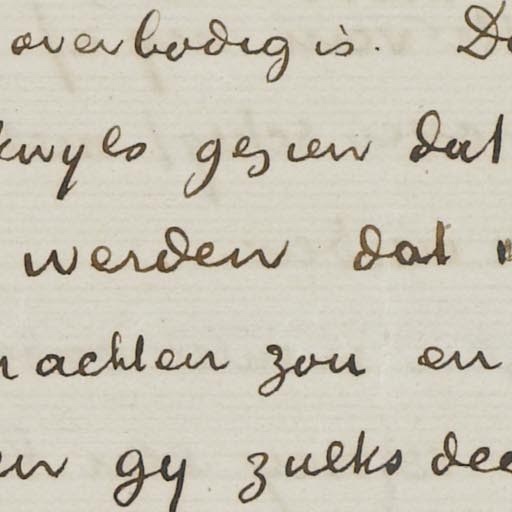 overbodig is. Do
kwyls gezien dat
werden dat
achten zou en
en gy zulks dee